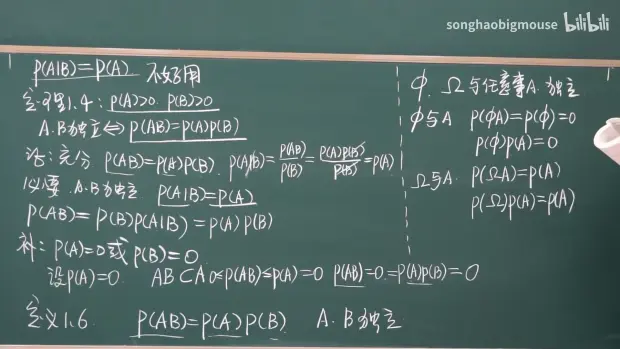 songhaobigmouse bilibili
P(A|B)=P(A) 不好用
定理1.4: P(A)>0. P(B)>0
A.B独立⇔P(AB)=P(A)P(B)
充分 P(AB)=P(A)P(B). P(A|B)=P(AB)/P(B)=P(A)P(B)/P(B)=P(A)
必要. A.B独立 P(A|B)=P(A)
P(AB)=P(B)P(A|B)=P(A)P(B)
补: P(A)=0或P(B)=0
设P(A)=0 AB⊂A 0≤P(AB)≤P(A)=0 P(AB)=0=P(A)P(B)=0
定义1.6. P(AB)=P(A)P(B) A.B独立
φ. Ω与任意事A.独立
φ与A P(φA)=P(φ)=0
P(φ)P(A)=0
Ω与A. P(ΩA)=P(A)
P(Ω)P(A)=P(A)